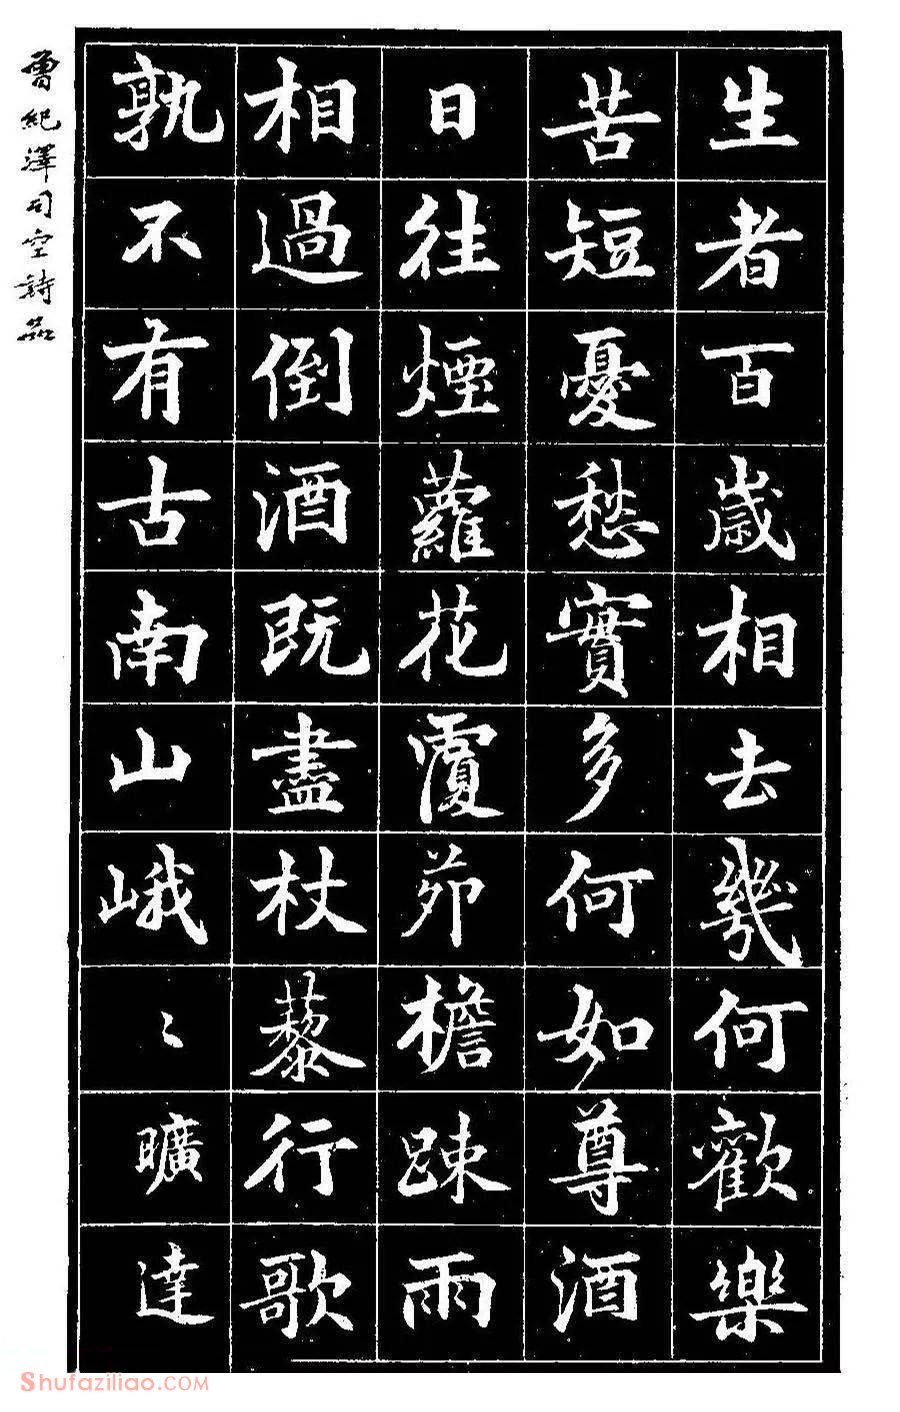 生者百歲相去幾何歡樂
苦短憂愁實多何如尊酒
日往煙蘿花覆茆檐疎雨
相過倒酒既盡杖藜行歌
孰不有古南山峨〻曠達
曾紀澤司空詩品
Shufaziliao.COM